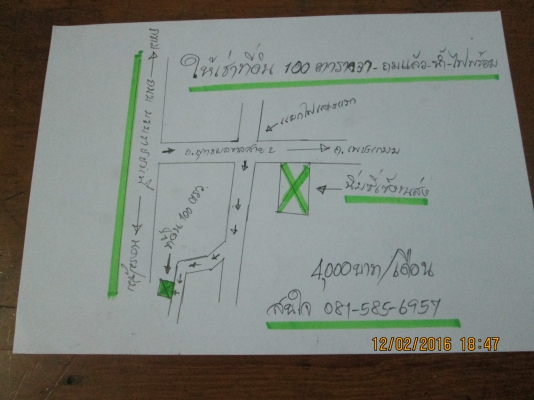 ให้เช่าที่ดิน 100 ตารางวา-ถมแล้ว-น้ำ-ไฟพร้อม
แยกไฟแดงแรก
ถ.พุทธมณฑลสาย 2
ถ.เพชรเกษม
กทม
ถนน บรมราชชนนี
นครปฐม
4,000บาท/เดือน
สนใจ 081-585-6957
12/02/2016 18:47